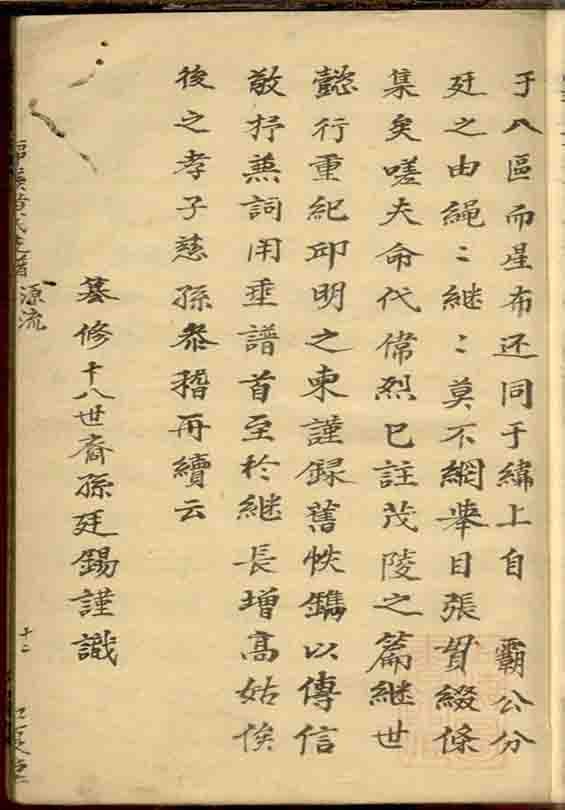 于八區而星布还同于緯上自　霸公分
廷之由繩〻継〻莫不網舉目張貫綴條
集矣嗟夫命代偉烈已註茂陵之篇継世
懿行重紀邱明之柬謹録舊帙鐫以傳信
敬抒蕪詞用垂譜首至於継長增高姑俟
後之孝子慈孫叅稽再續云
纂修十八世裔孫廷錫謹識
源流
十二